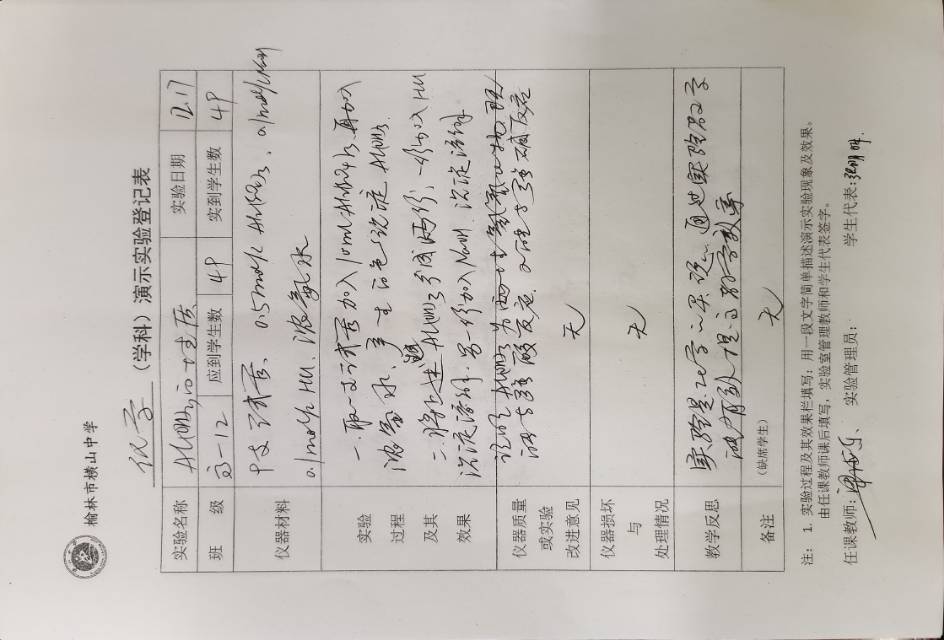 榆林市横山中学
化学(学科)演示实验登记表
实验名称 Al(OH)₃的性质 实验日期 12.17
班 级 高一12 应到学生数 49 实到学生数 49
仪器材料 中支试管、0.5mol/L Al₂(SO₄)₃、0.1mol/L NaOH
0.1mol/L HCl、浓氨水
实验
过程
及其
效果
一.取一支试管加入10ml Al₂(SO₄)₃再加入
浓氨水,产生白色沉淀 Al(OH)₃
二.将上述 Al(OH)₃分成两份,一份加入HCl
沉淀溶解.另一份加入NaOH 沉淀溶解
证明 Al(OH)₃为两性氢氧化物既
与强酸反应又与强碱反应
仪器质量
或实验
改进意见
无
仪器损坏
与
处理情况
无
教学反思
实验是化学的灵魂,通过实验教学
备注
(缺席学生)
无
注:1. 实验过程及其效果栏填写:用一段文字简单描述演示实验现象及效果。
由任课教师课后填写,实验室管理教师和学生代表签字。
任课教师: 实验管理员: 学生代表: